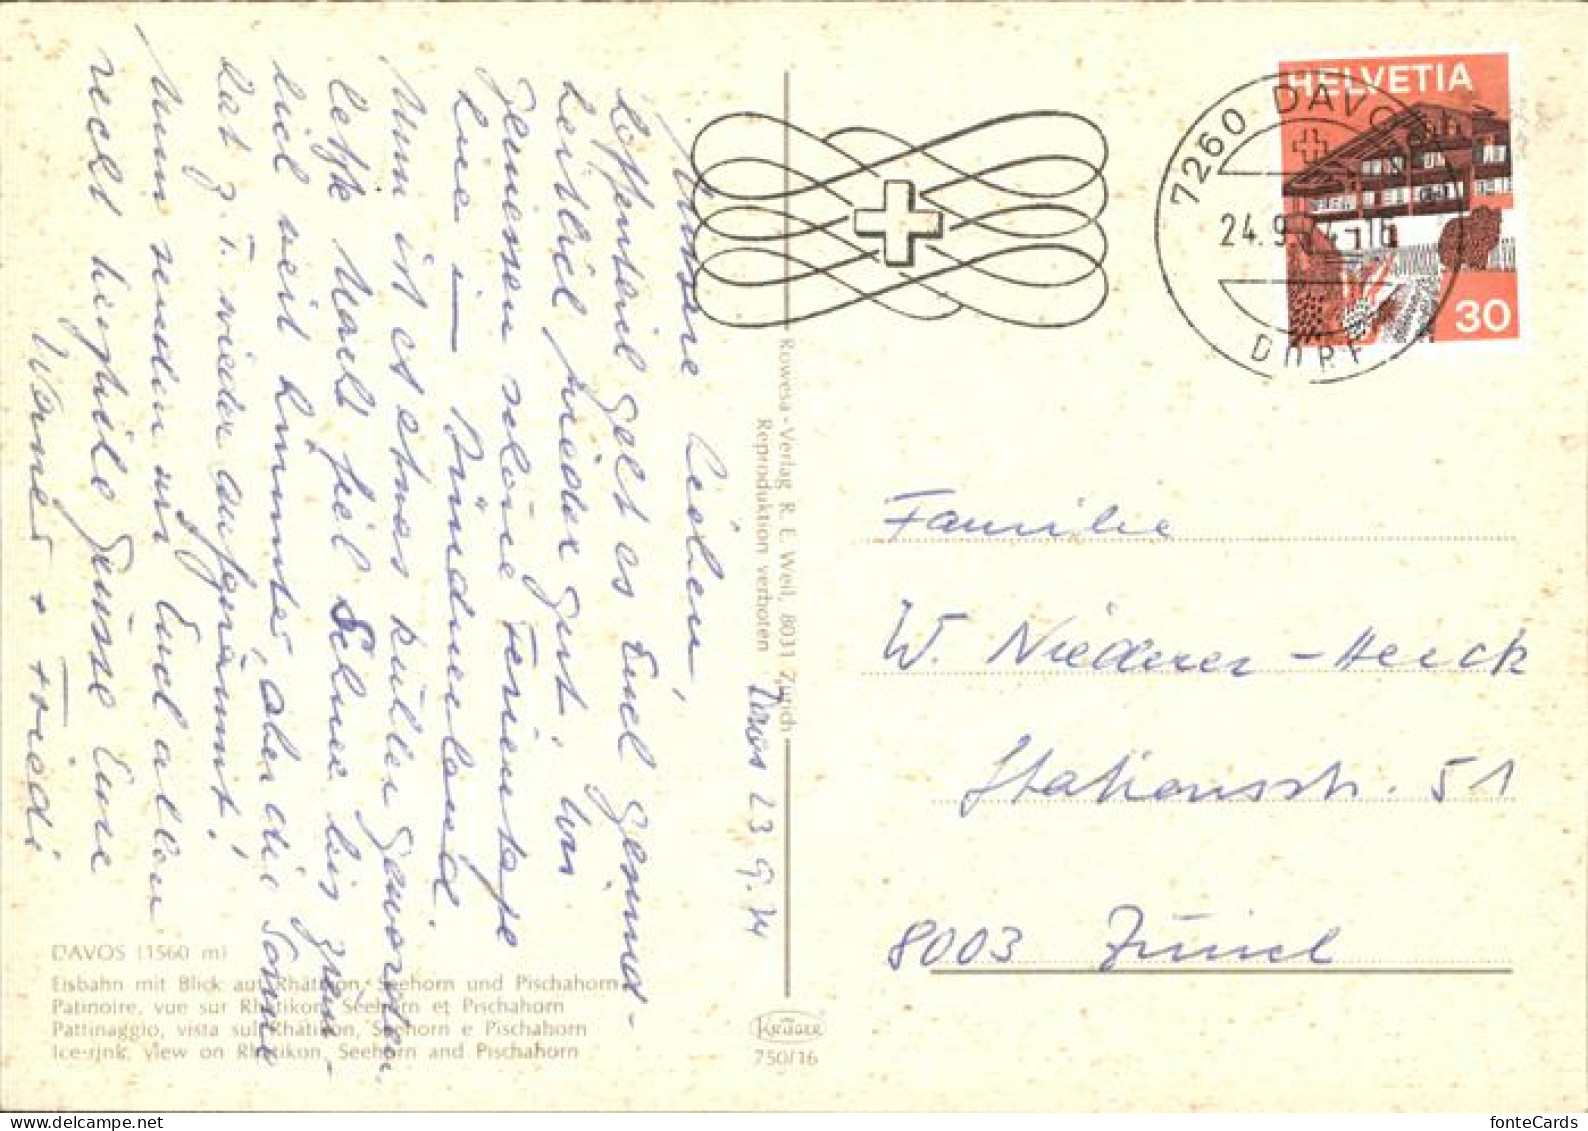 Davos 23.9.74
Meine Lieben,
Hoffentlich geht es Euch gesund-
heitlich wieder gut. Wir
geniessen schöne Ferientage
hie im Bündnerland.
Nun ist es etwas kühler geworden.
letzte Nacht fiel Schnee bis ziem-
lich weit hinunter, aber die Sonne
hat z. T. wieder aufgeräumt!
Nun senden wir Euch allen
recht herzliche Grüsse Eure
Werner + Friedi
Rowesa-Verlag R. E. Weil, 8031 Zürich
Reproduktion verboten
KRÜGER
750/16
DAVOS (1560 m)
Eisbahn mit Blick auf Rhätikon, Seehorn und Pischahorn
Patinoire, vue sur Rhätikon, Seehorn et Pischahorn
Pattinaggio, vista sul Rhätikon, Seehorn e Pischahorn
Ice-rink, view on Rhätikon, Seehorn and Pischahorn
HELVETIA
30
7260 DAVOS
24.9.74-16
DORF
Familie
W. Niederer-Heick
Stationsstr. 51
8003 Zürich
fonteCards